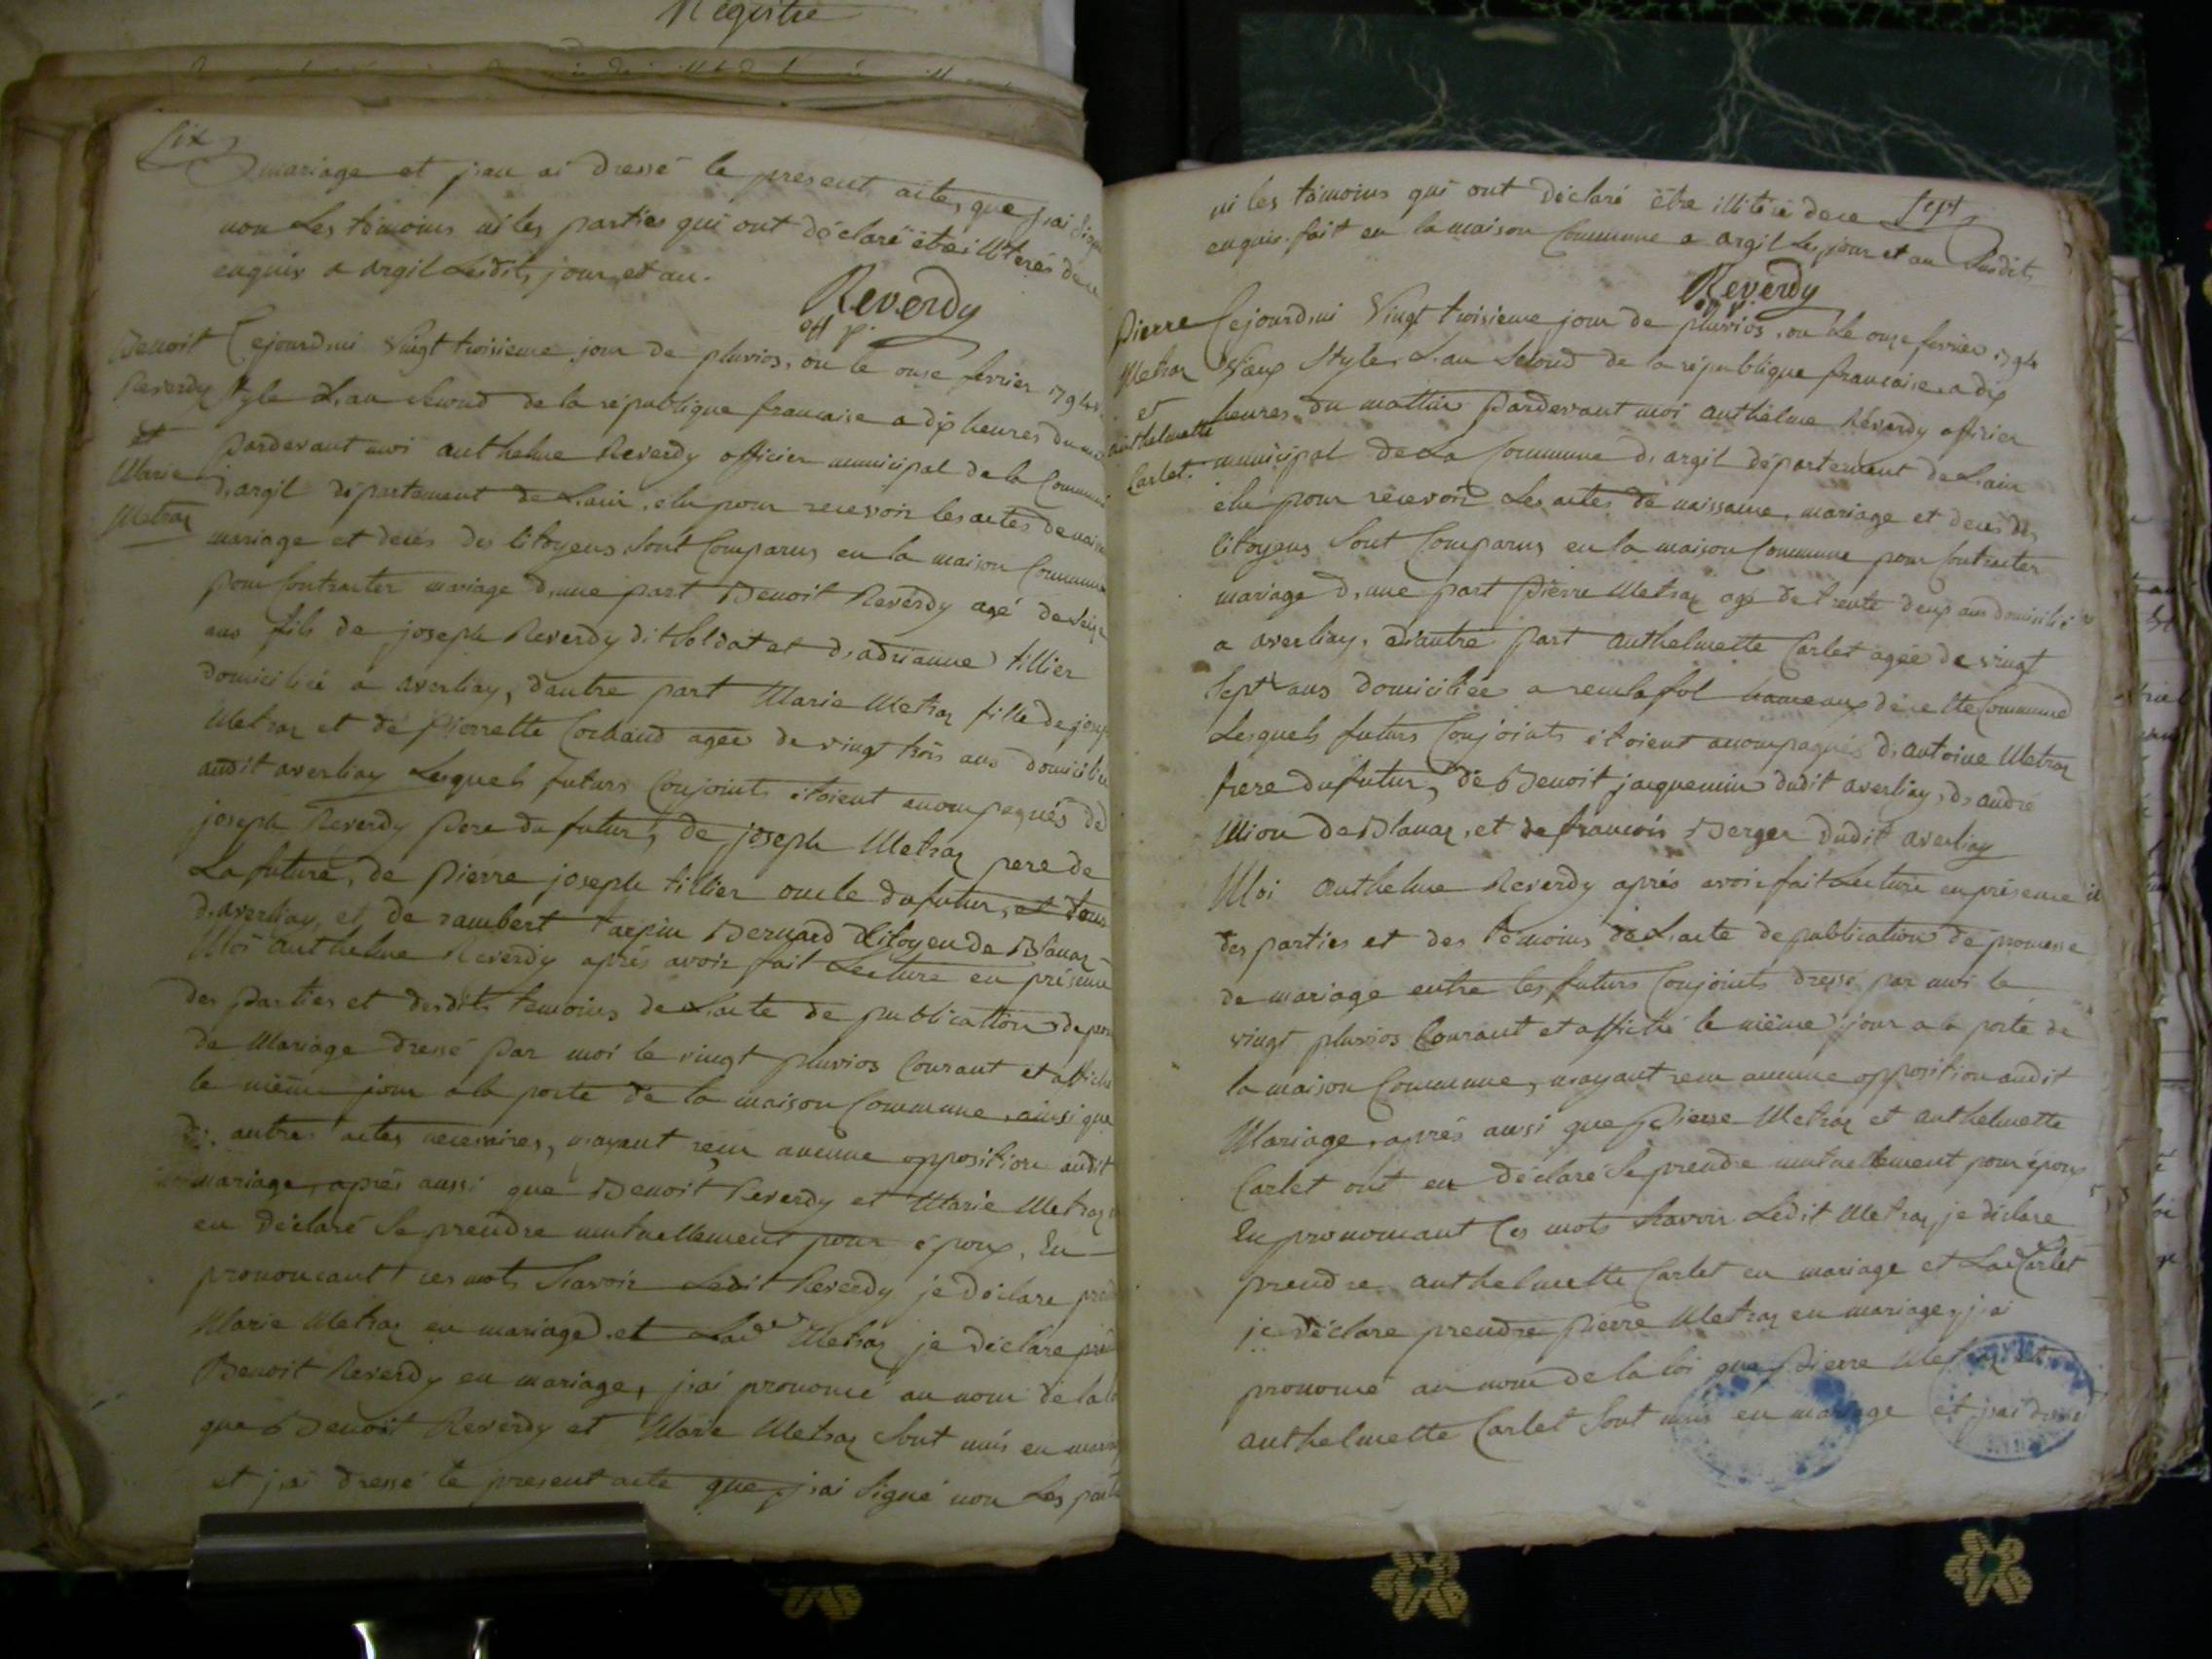 Registre
six
mariage et j'en ai dressé le present acte, que j'ai
non Les témoins ni les parties qui ont déclaré être illiterés de ce
enquis a argil Lesdits jour et an.
Reverdy
off p.
Benoit
Reverdy
et
Marie
Metraz
Cejourd'ui vingt troisieme jour de pluvios, ou le onze fevrier 1794
style L'an second de la république francaise a dix heures du
pardevant moi anthelme Reverdy officier municipal de la Commune
d'argil département de L'ain, elu pour recevoir les actes de
mariage et decés des Citoyens sont Comparus en la maison Commune
pour Contracter mariage d'une part Benoit Reverdy agé de
ans fils de joseph Reverdy dit soldat et d'adrianne tillier
domicilié a averliay, d'autre part Marie Metraz fille de
Metraz et de pierrette Cochaud agée de vingt trois ans
audit averliay Lesquels futurs Conjoints étoient accompagnés de
joseph Reverdy pere du futur, de joseph Metraz pere de
La future, de pierre joseph tillier oncle du futur, et tous
d'averliay, et de rambert tarpin Bernard Citoyen de Blanaz
Moi anthelme Reverdy aprés avoir fait Lecture en présence
des parties et desdits temoins de L'acte de publication de
de Mariage dressé par moi le vingt pluvios Courant et affiché
le même jour a la porte de la maison Commune, ainsi que
autres actes necessaires, n'ayant reçu aucune opposition audit
mariage, aprés aussi que Benoit Reverdy et Marie Metraz
en déclaré se prendre mutuellement pour époux, En
prononcant ces mots savoir Ledit Reverdy je déclare
Marie Metraz en mariage et Lade Metraz je déclare
Benoit Reverdy en mariage, j'ai prononcé au nom de la
que Benoit Reverdy et Marie Metraz sont unis en
et j'ai dressé le present acte que j'ai signé non Les
sept
ni les témoins qui ont déclaré être illiteré de ce
enquis. fait en la maison Commune a argil Les jour et an susdits
Reverdy
off p.
Pierre
Metraz
et
anthelmette
Carlet.
Cejourd'ui vingt troisieme jour de pluvios, ou Le onze fevrier 1794
vieux style, L'an second de la république francaise a dix
heures du mattin pardevant moi anthelme Réverdy officier
municipal de La Commune d'argil département de L'ain
elu pour recevoir Les actes de naissance, mariage et deces des
Citoyens sont Comparus en la maison Commune pour Contracter
mariage d'une part pierre Metraz agé de trente deux ans domicilié
a averliay, d'autre part anthelmette Carlet agée de vingt
sept ans domiciliée a remlafol hameaux de cette Commune
Lesquels futurs Conjoints étoient accompagnés d'antoine Metraz
frere du futur, de Benoit jacquemin dudit averliay, d'andré
Mion de Blanaz, et de francois Berger dudit averliay
Moi anthelme Reverdy aprés avoir fait Lecture en présence
des parties et des témoins de L'acte de publication de promesse
de mariage entre les futurs Conjoints dressé par moi le
vingt pluvios Courant et affiché le même jour a la porte de
la maison Commune, n'ayant recu aucune opposition audit
Mariage, aprés aussi que pierre Metraz et anthelmette
Carlet ont en déclaré se prendre mutuellement pour époux
En prononcant Ces mots savoir Ledit Metraz, je déclare
prendre anthelmette Carlet en mariage et Lade Carlet
je déclare prendre pierre Metraz en mariage, j'ai
prononcé au nom de la loi que pierre Metraz et
anthelmette Carlet sont unis en mariage et j'ai dressé